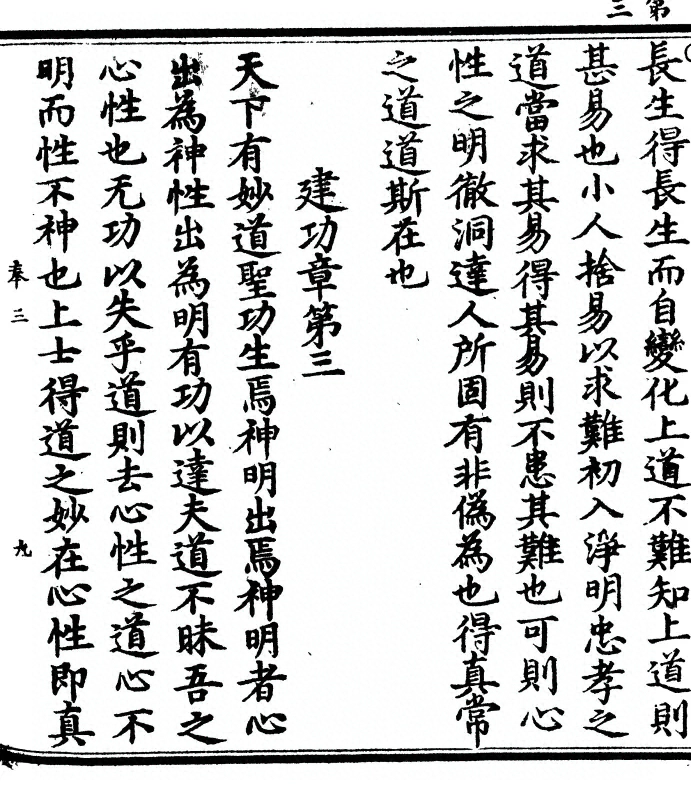 第三
長生得長生而自變化上道不難知上道則
甚易也小人捨易以求難初入淨明忠孝之
道當求其易得其易則不患其難也可則心
性之明徹洞達人所固有非偽為也得真常
之道道斯在也
建功章第三
天下有妙道聖功生焉神明出焉神明者心
出為神性出為明有功以達夫道不昧吾之
心性也无功以失乎道則去心性之道心不
明而性不神也上士得道之妙在心性即真
奉三
九